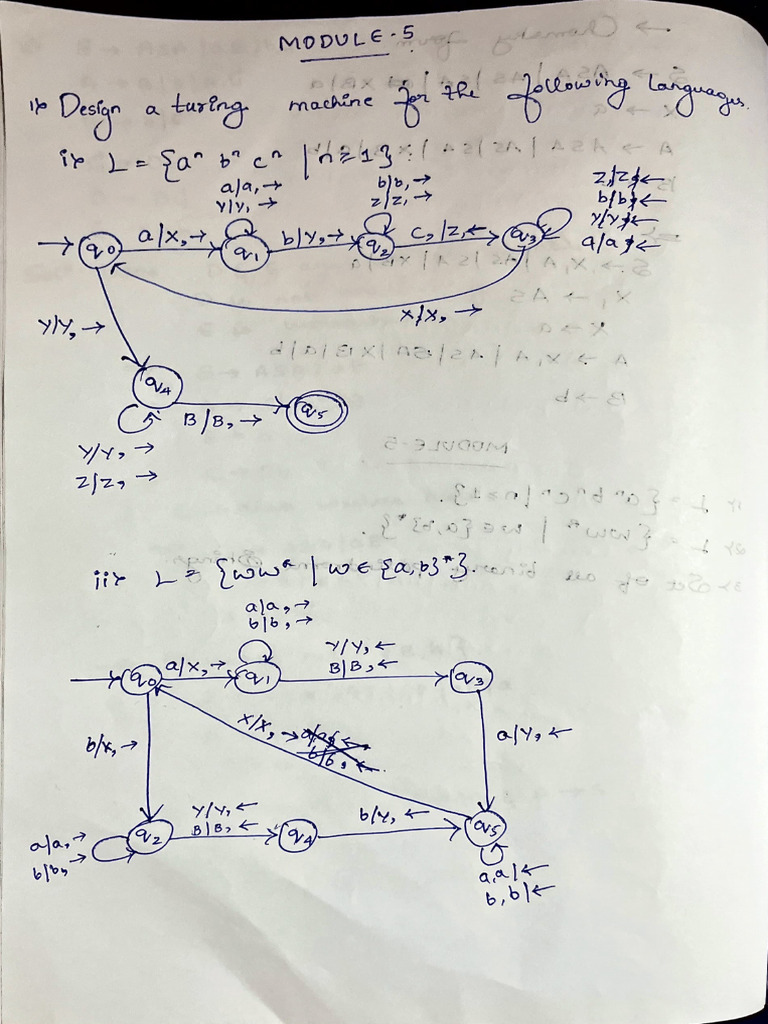 MODULE-5
1) Design a turing machine for the following languages.
i) L = {aⁿ bⁿ cⁿ | n≥1}.
a/a, →
Y/Y, →
b/b, →
Z/Z, →
Z/Z, ←
b/b, ←
Y/Y, ←
a/a, ←
→ q0 a/X, → q1 b/Y, → q2 C, /Z, ← q3
X/X, →
Y/Y, →
q4 B/B, → q5
Y/Y, →
Z/Z, →
ii) L = {wwᴿ | w ∈ {a,b}*}.
a/a, →
b/b, →
Y/Y, ←
B/B, ←
→ q0 a/X, → q1 q3
X/X, →
a/Y, ←
b/X, →
Y/Y, ←
B/B, ←
b/Y, ←
q2 q4 q5
a/a, →
b/b, →
a,a/←
b,b/←